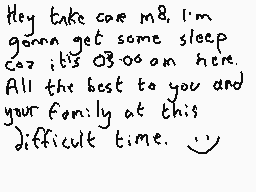 Hey take care m8, I'm
gonna get some sleep
coz it's 03:00 am here.
All the best to you and
your family at this
difficult time. :)